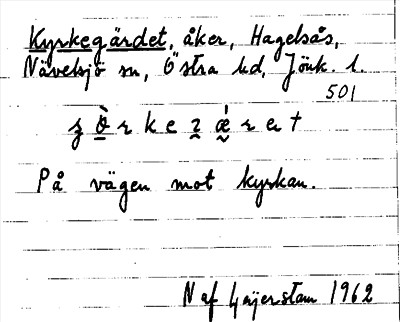 Kyrkegärdet, åker, Hagelsås,
Nävelsjö sn, Östra hd, Jönk. l.
501
På vägen mot kyrkan.
N af Geijerstam 1962